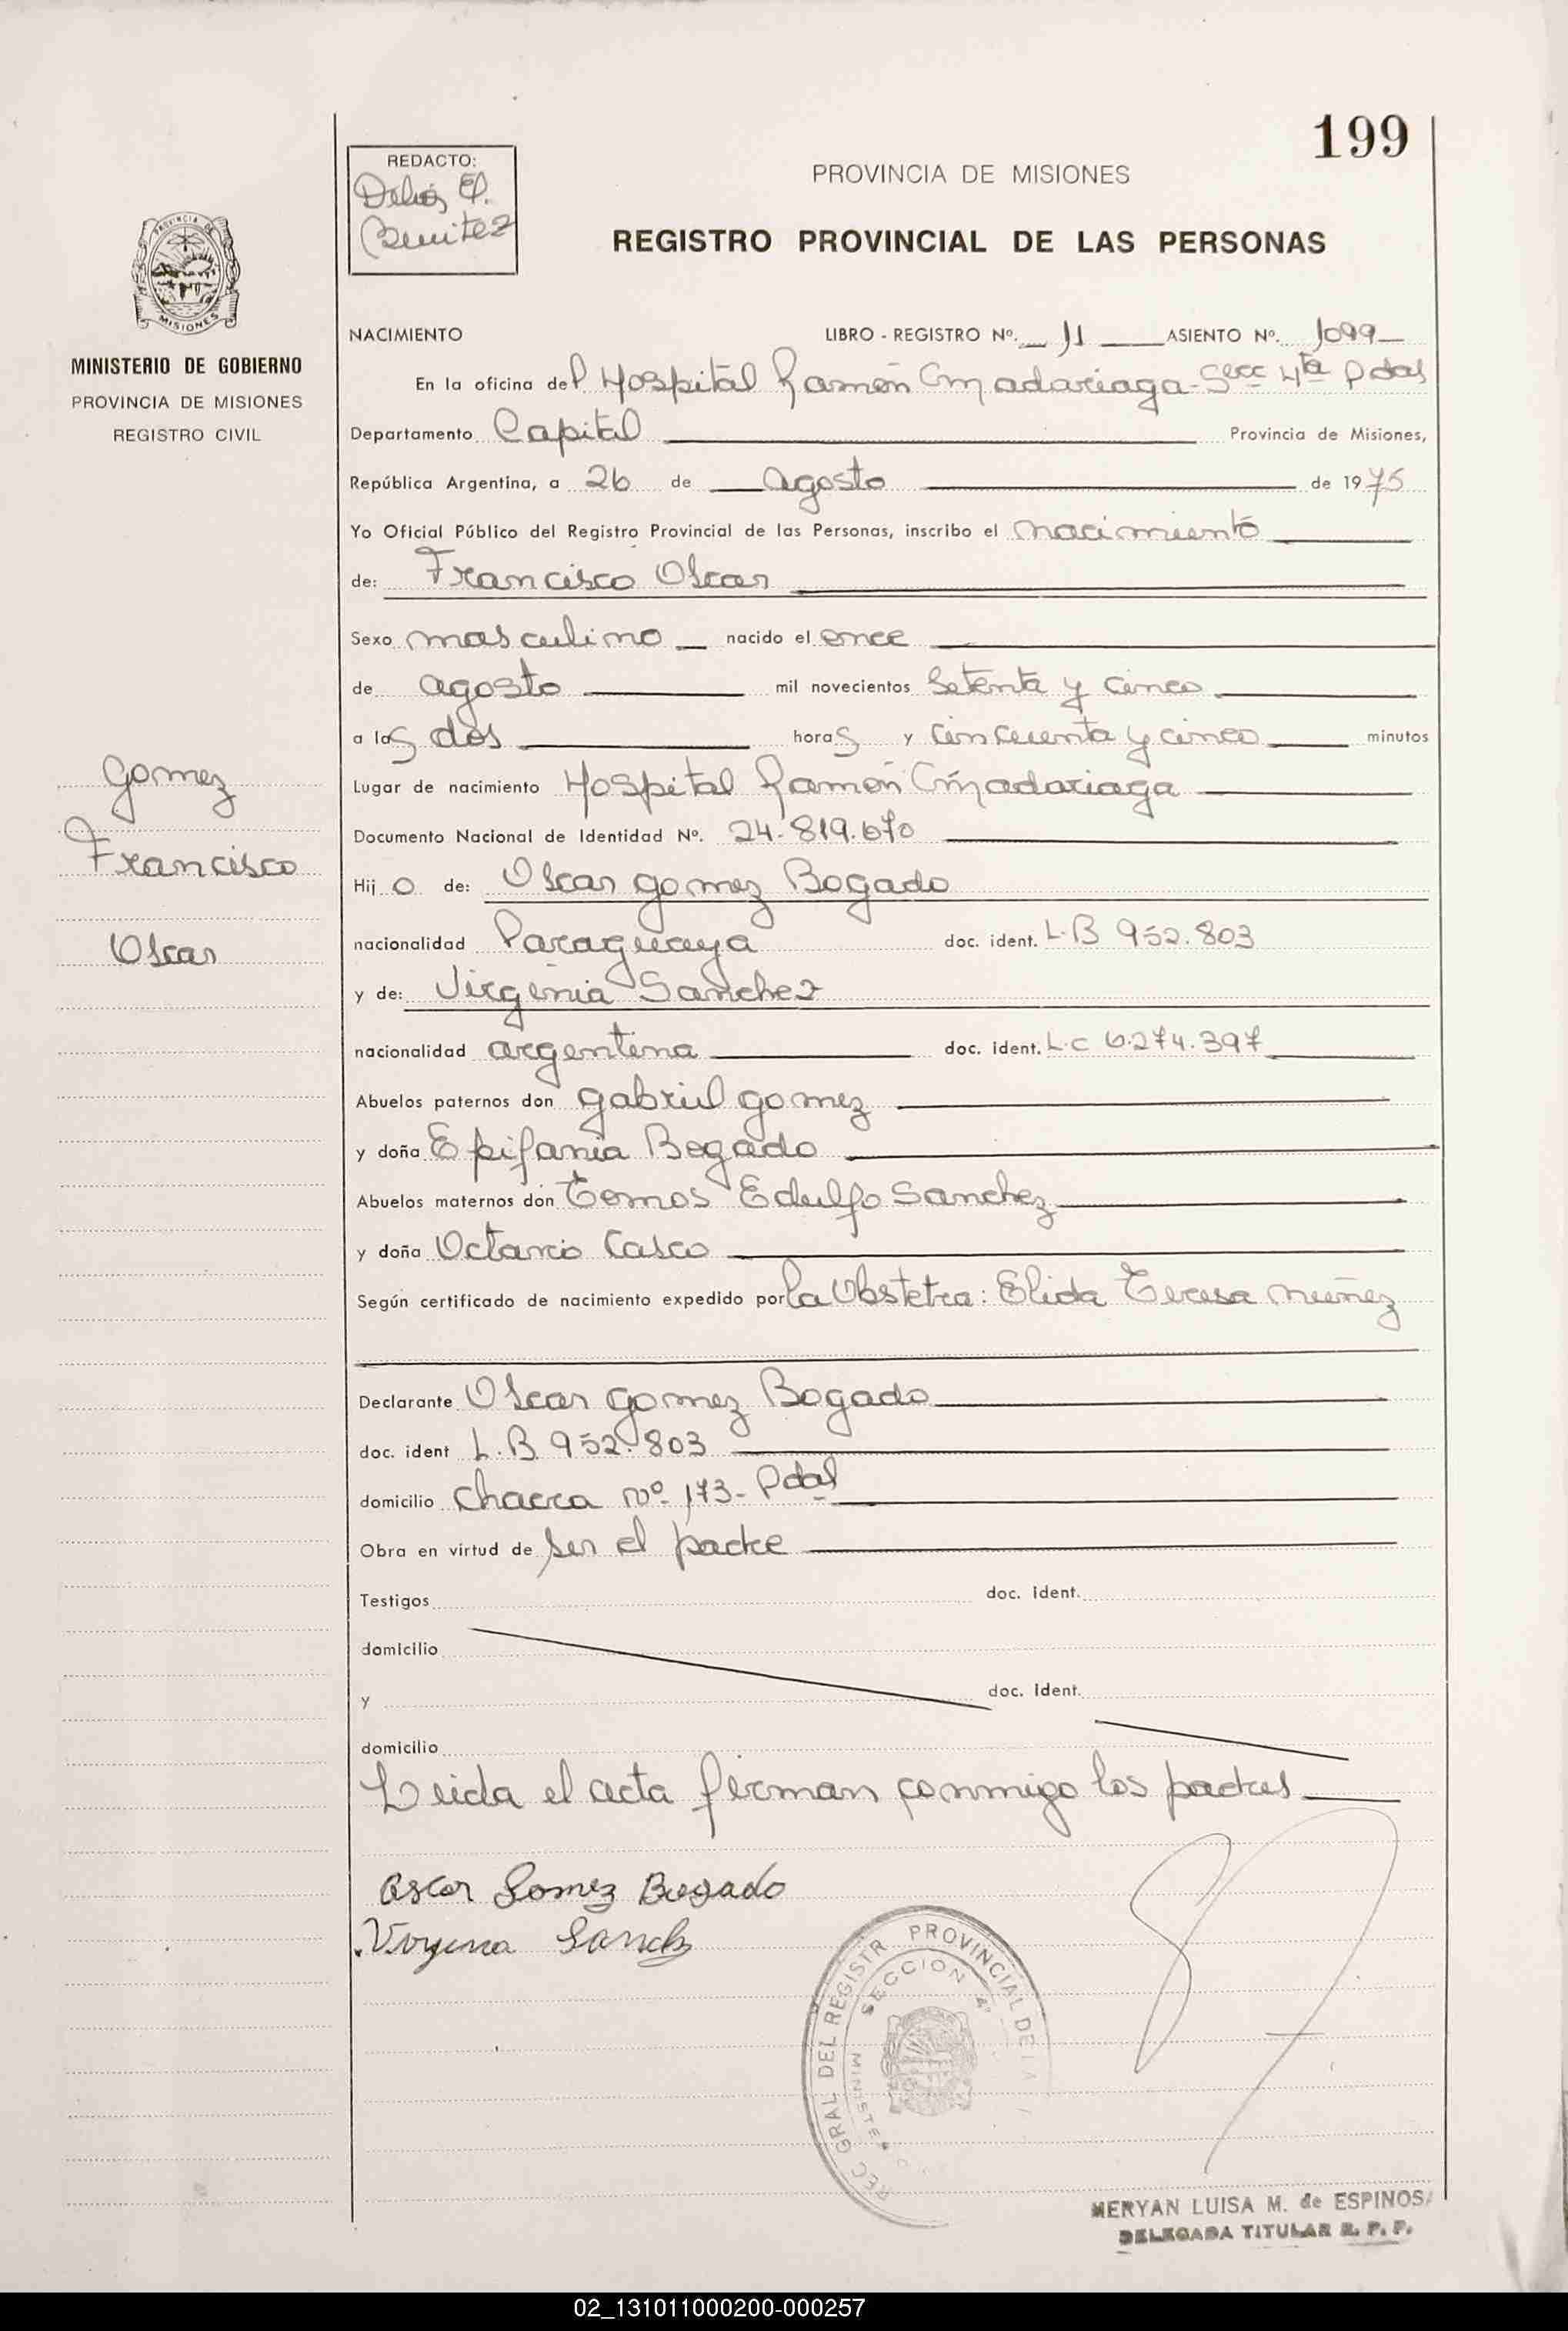 199
REDACTO:
Benitez
PROVINCIA DE MISIONES
REGISTRO PROVINCIAL DE LAS PERSONAS
PROVINCIA DE
MISIONES
MINISTERIO DE GOBIERNO
PROVINCIA DE MISIONES
REGISTRO CIVIL
NACIMIENTO LIBRO - REGISTRO Nº. 11 ASIENTO Nº. 1099
En la oficina del Hospital Ramón Madariaga - Secc 4ta Pdas
Departamento Capital Provincia de Misiones,
República Argentina, a 26 de Agosto de 1975
Yo Oficial Público del Registro Provincial de las Personas, inscribo el nacimiento
de: Francisco Oscar
Sexo masculino nacido el once
de agosto mil novecientos setenta y cinco
a las dos horas y cincuenta y cinco minutos
Lugar de nacimiento Hospital Ramón Madariaga
Documento Nacional de Identidad Nº. 24.819.670
Hijo de: Oscar Gomez Bogado
nacionalidad Paraguaya doc. ident. L.B 952.803
y de: Virginia Sanchez
nacionalidad argentina doc. ident. L.C 6.274.397
Abuelos paternos don Gabriel Gomez
y doña Epifania Bogado
Abuelos maternos don Tomas Edulfo Sanchez
y doña Casco
Según certificado de nacimiento expedido por la Obstetra: Elida Teresa Nuñez
Declarante Oscar Gomez Bogado
doc. ident L.B. 952.803
domicilio Chacra Nº 173 - Pdas
Obra en virtud de ser el padre
Testigos doc. ident.
domicilio
y doc. ident.
domicilio
Leida el acta firman conmigo los padres
Gomez
Francisco
Oscar
Oscar Gomez Bogado
Virginia Sanchez
GRAL DEL REGISTR PROVINCIAL DE LA
SECCION 4ª
MERYAN LUISA M. de ESPINOS
DELEGADA TITULAR R. P. P.
02_131011000200-000257